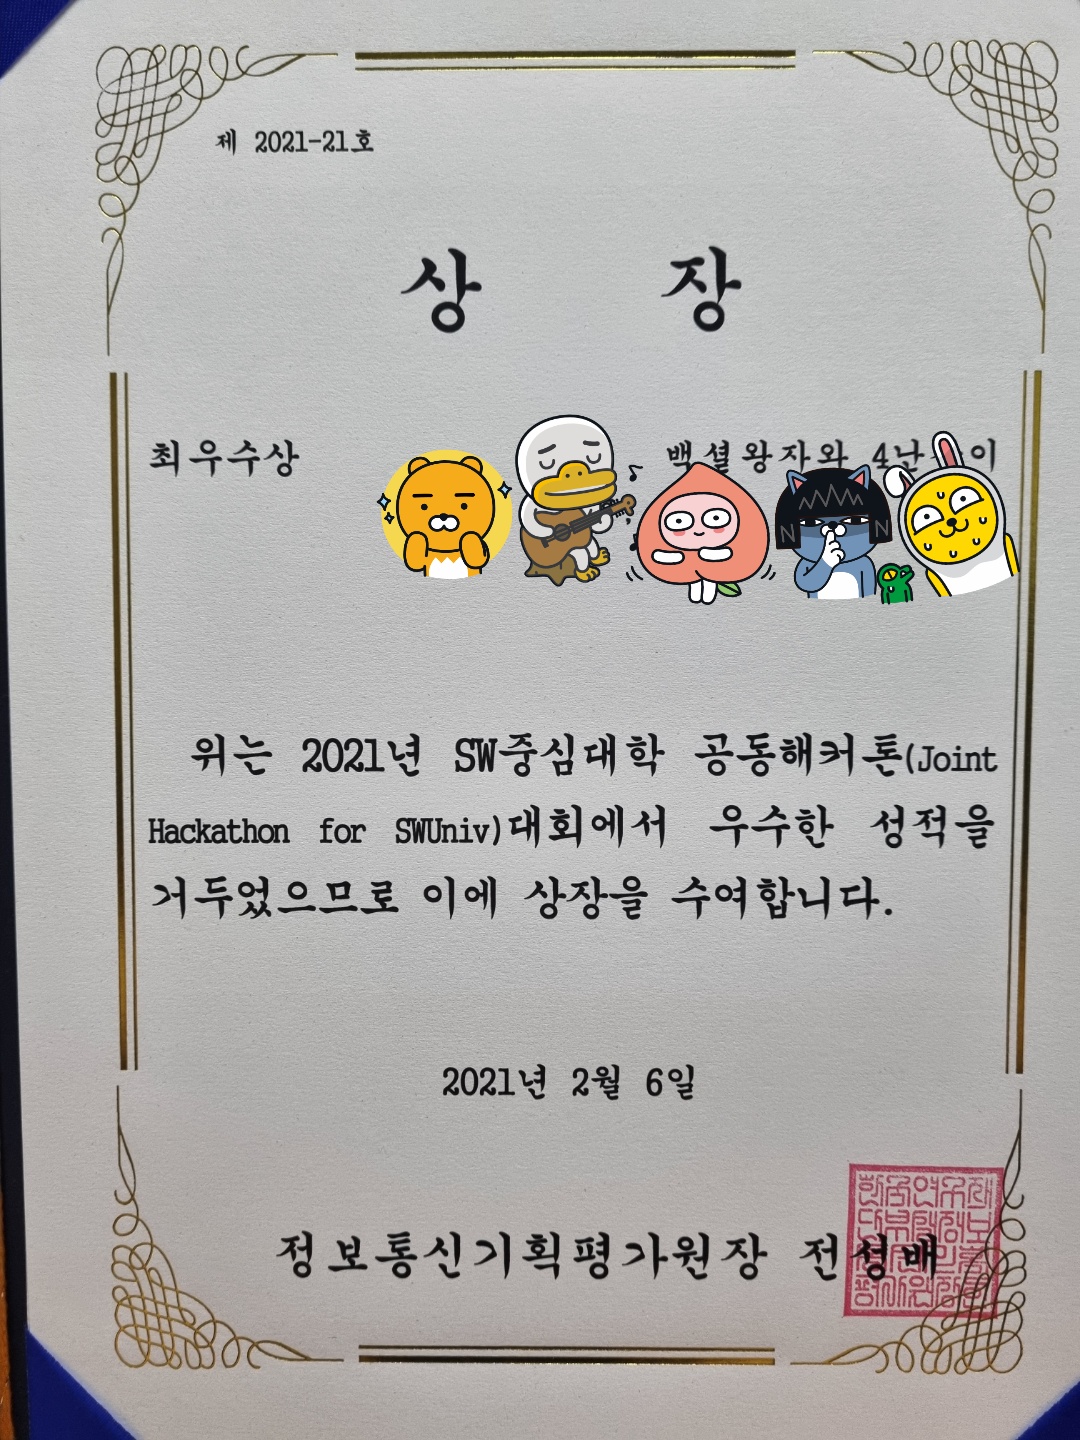 제 2021-21호
상 장
최우수상 백설왕자와 4난 이
위는 2021년 SW중심대학 공동해커톤(Joint
Hackathon for SWUniv)대회에서 우수한 성적을
거두었으므로 이에 상장을 수여합니다.
2021년 2월 6일
정보통신기획평가원장 전성배